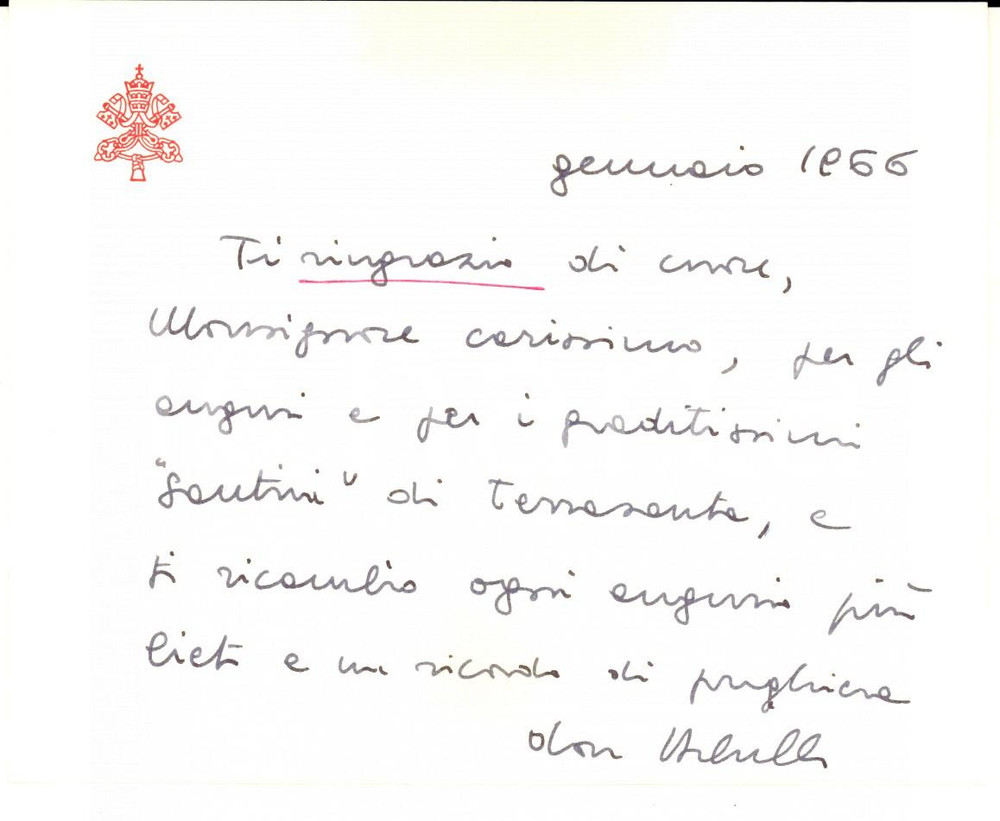 gennaio 1966
Ti ringrazio di cuore,
Monsignore carissimo, per gli
auguri e per i graditissimi
"Santini" di Terrasanta, e
ti ricambio ogni augurio più
lieto e un ricordo di preghiera
don